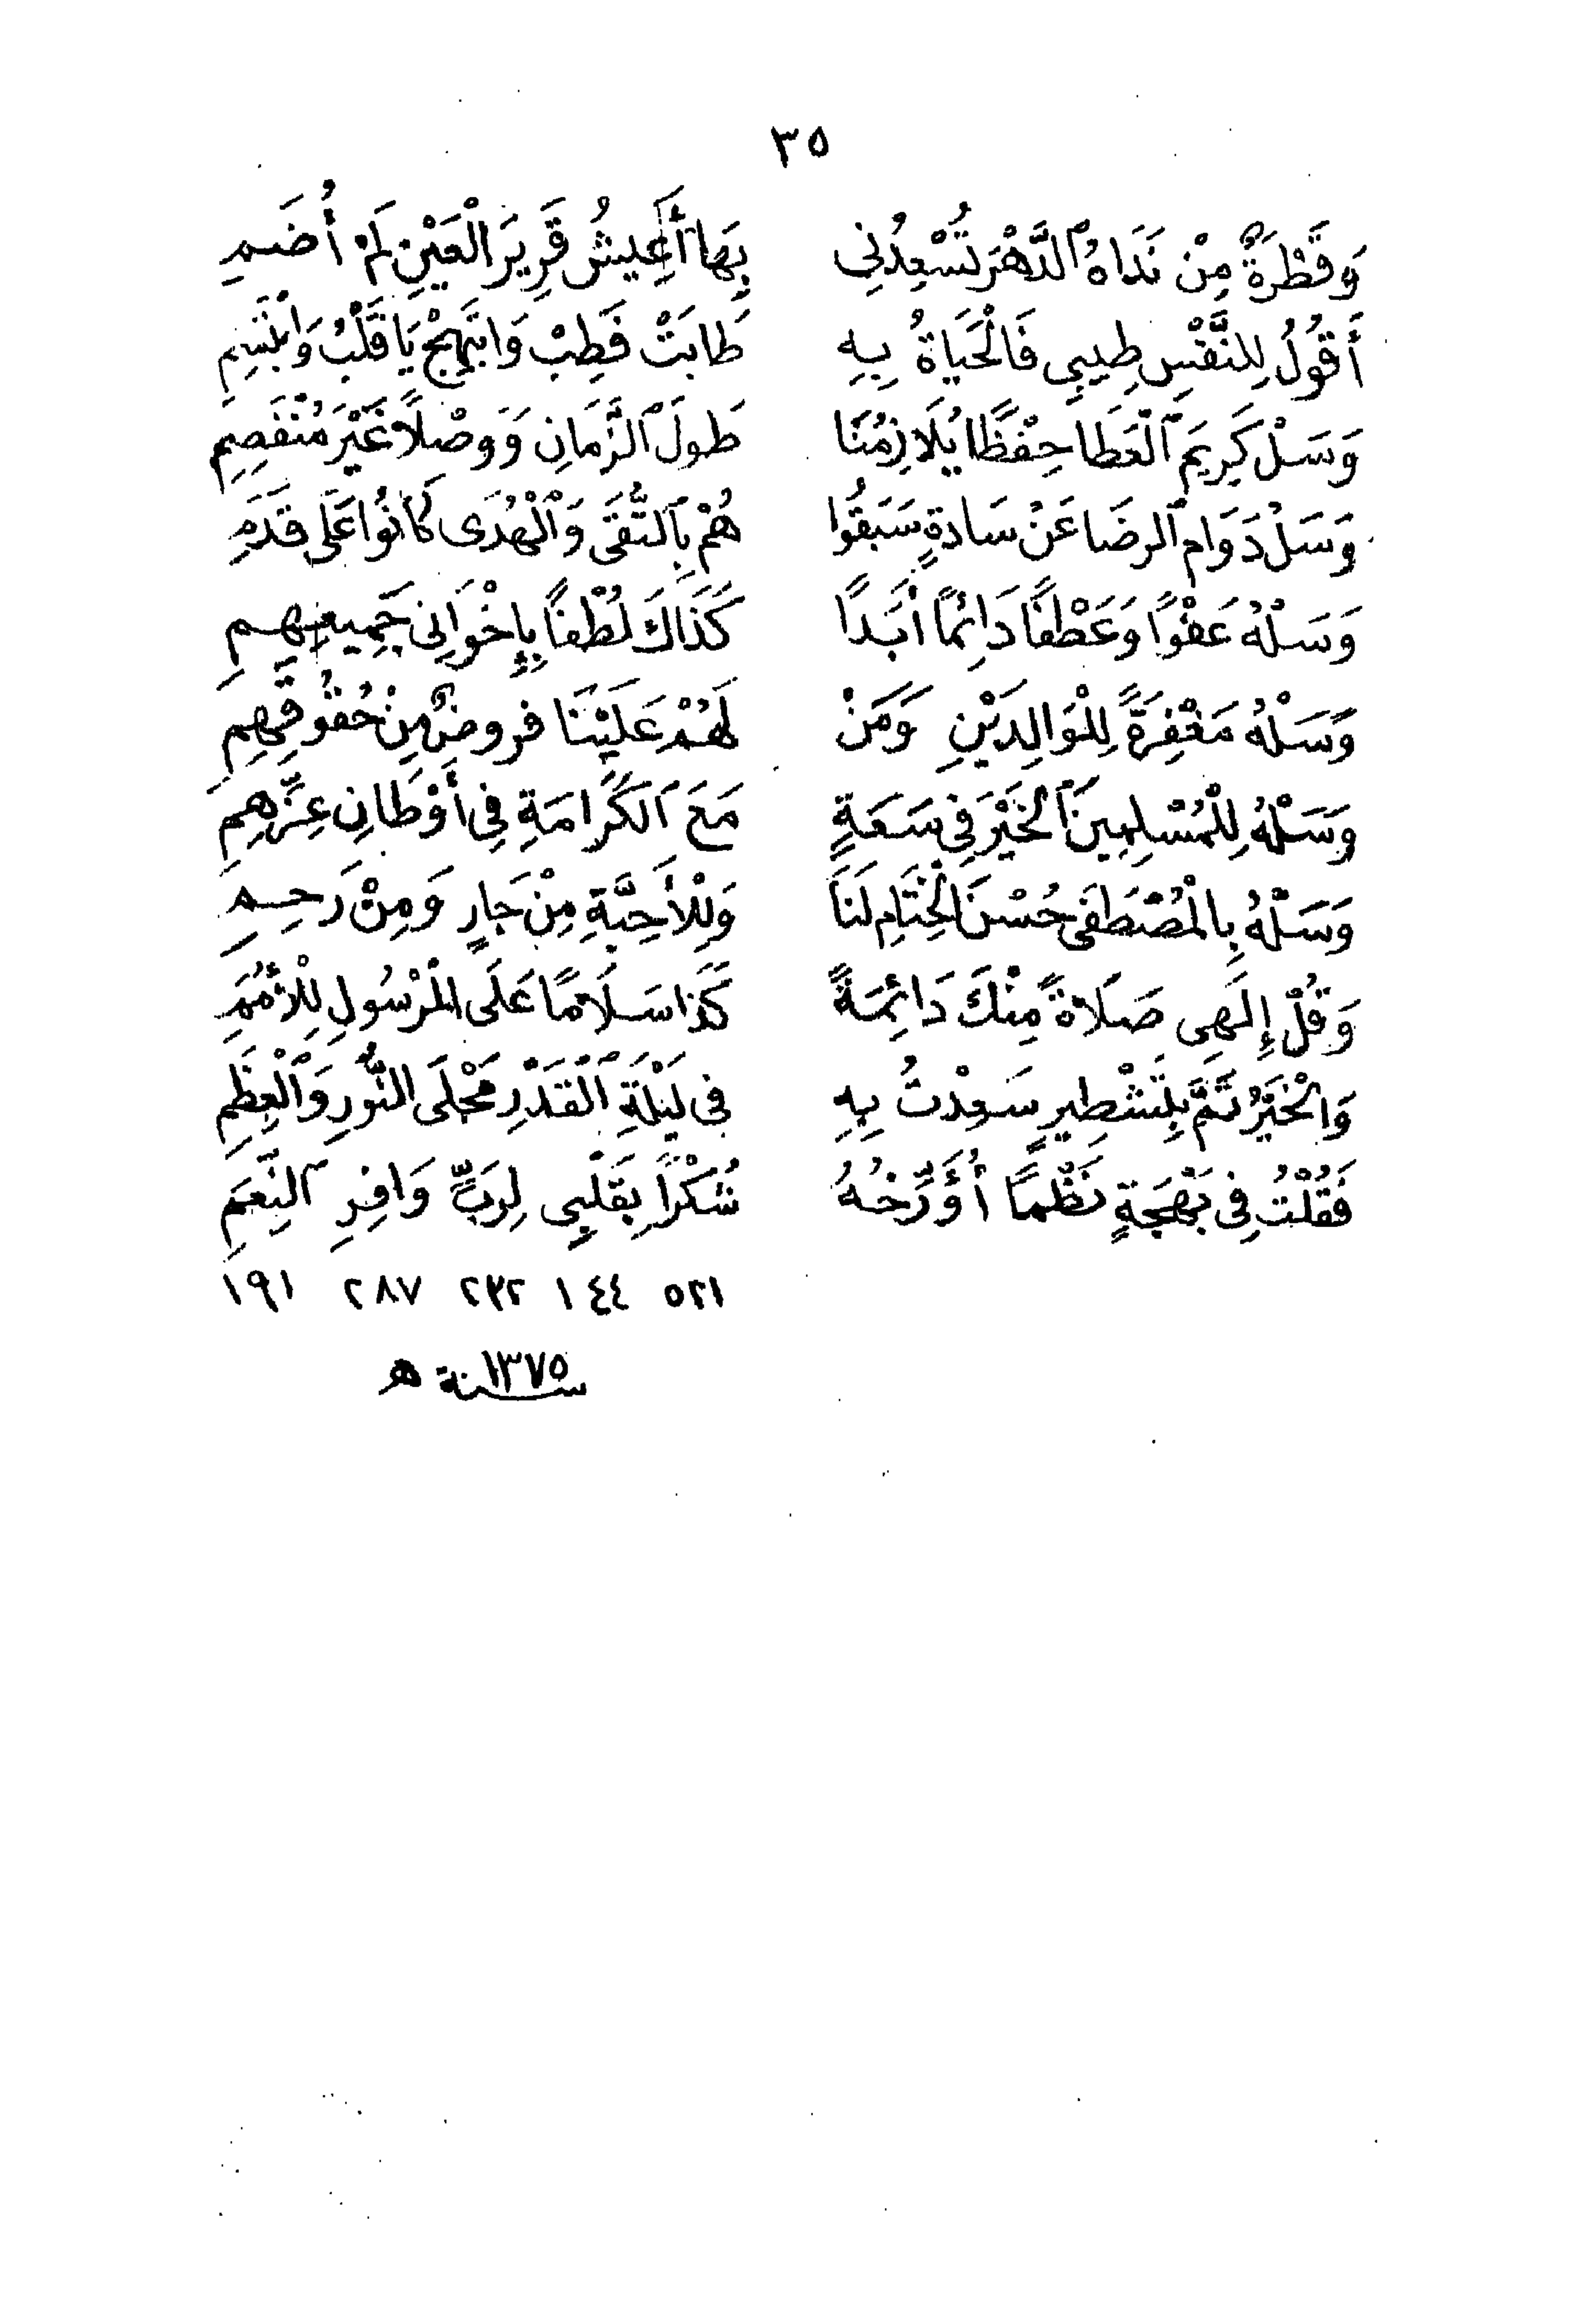 ٣٥
وَقَطْرَةٌ مِنْ نَدَاهُ ٱلدَّهْرَ تُسْعِدُنِي بِهَا أَعِيشُ قَرِيرَ الْعَيْنِ لَمْ أُضَمِ
أَقُولُ لِلنَّفْسِ طِيبِي فَالْحَيَاةُ بِهِ طَابَتْ فَطِبْ وَابْتَهِجْ يَا قَلْبُ وَابْتَسِمِ
وَسَلْ كَرِيمَ ٱلْعَطَا حِفْظًا يُلَازِمُنَا طُولَ ٱلزَّمَانِ وَوَصْلًا غَيْرَ مُنْفَصِمِ
وَسَلْ دَوَامَ ٱلرِضَا عَنْ سَادةٍ سَبَقُوا هُمْ بِٱلتُّقَى وَٱلْهُدَى كَانُوا عَلَى قَدَمِ
وَسَلْهُ عَفْوًا وَعَطْفًا دَائِمًا أَبَدًا كَذَاكَ لُطْفًا بِإِخْوَانِى جَمِيعِهِمِ
وَسَلْهُ مَغْفِرَةً لِلْوَالِدَيْنِ وَمَنْ لَهُمْ عَلَيْنَا فروضٌ مِنْ حُقُوقِهِمِ
وَسَلْهُ لِلْمُسْلِمِينَ ٱلْخَيْرَ فِي سَعَةٍ مَعَ ٱلْكَرَامَةِ فِي أَوْطَانِ عِزِّهِمِ
وَسَلْهُ بِالْمُصْطَفَى حُسْنَ الْخِتَامِ لَنَا وَلِلْأَحِبَّةِ مِنْ جَارٍ وَمِنْ رَحِمِ
وَقُلْ إِلَهِى صَلَاةً مِنْكَ دَائِمَةً كَذَا سَلَامًا عَلَى الْمَرْسُولِ لِلْأُمَمِ
وَالْخَيْرُ تَمَّ بِتَشْطِيرٍ سَعِدْتُ بِهِ فى لَيْلَةِ ٱلْقَدْرِ مَجْلَى النُّورِ وَٱلْعِظَمِ
فَقُلْتُ فِى بَهْجَةٍ نَظْمًا أُؤَرِّخُهُ شُكْرًا بِقَلْبِى لِرَبٍّ وَافِرِ ٱلنِّعَمِ
٥٢١ ١٤٤ ٢٣٢ ٢٨٧ ١٩١
سنة ١٣٧٥ ه